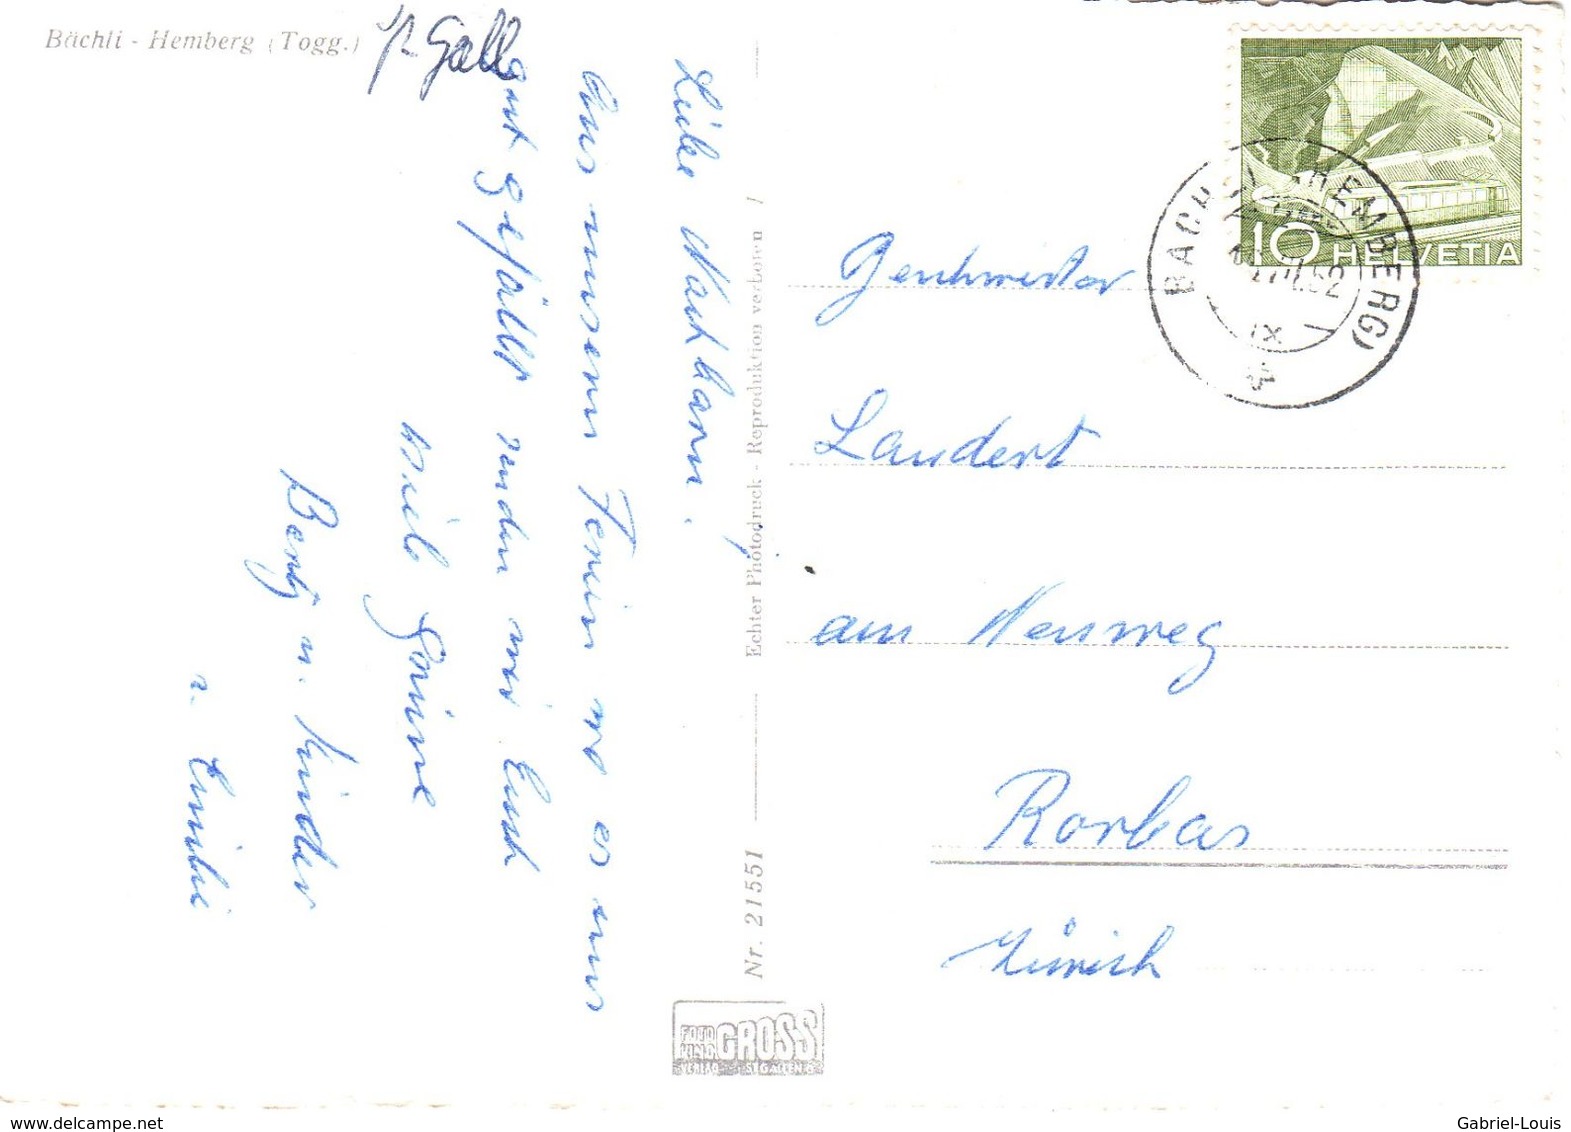 Bächli - Hemberg (Togg.)
Gall
Liebe Nachbarn.
Aus unseren Ferien wo es uns
gut gefällt senden wir Euch
viele Grüsse
u. Kinder
u. Emilie
Echter Photodruck - Reproduktion verboten /
Nr. 21551
FOTO
KINO
GROSS
VERLAG ST. GALLEN
10 HELVETIA
BÄCHLI (HEMBERG)
52
IX
Geschwister
Landert
am Neuweg
Rorbas
Zürich
www.delcampe.net
Gabriel-Louis